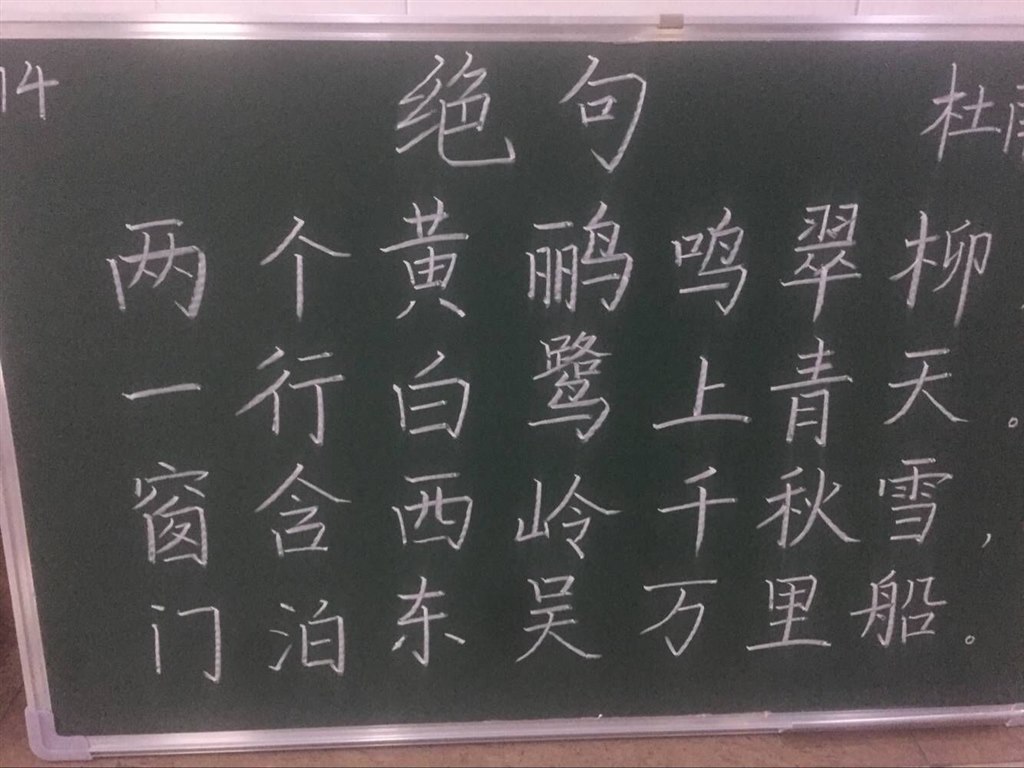 14 绝句 杜甫
两个黄鹂鸣翠柳，
一行白鹭上青天。
窗含西岭千秋雪，
门泊东吴万里船。